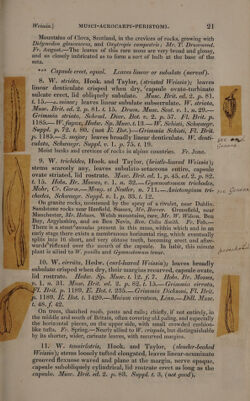 Weissia.] MUSCI-ACROCARPI-PERISTOMI. 21
Mountains, of Clova, Scotland, in the crevices of rocks, growing with
Didymodon glaucescens, and Oxytropis campestris; Mr. T. Drummond.
Fr. August.—The leaves of this rare moss are very broad and glossy,
and so closely imbricated as to form a sort of bulb at the base of the
seta.
*** Capsule erect, equal. Leaves linear or subulate (nerved).
8. W. striáta, Hook. and Taylor, (streaked Weissia); leaves
linear denticulate crisped when dry, capsule ovate-turbinate
sulcate erect, lid obliquely subulate. Musc. Brit. ed. 2. p. 81.
t. 15.—α. minor; leaves linear subulate subserrulate. W. striata,
Musc. Brit. ed. 2. p. 81. t. 15. Drum. Musc. Scot. v. 1. n. 29.—
Grimmia striata, Schrad. Dicr. Bot. v. 2. p. 57. Fl. Brit. p.
1185.—W. fugax, Hedw. Sp. Musc. t. 13.—W. Schisti, Schwaegr.
Suppl. p. 72. t. 80. (not E. Bot.)—Grimmia Schisti, Fl. Brit.
p. 1185.—β. major; leaves broadly linear denticulate. W. denti-
culata, Schwaegr. Suppl. v. 1. p. 75. t. 19.
Moist banks and crevices of rocks in alpine countries. Fr. June.
9. W. trichódes, Hook. and Taylor, (bristle-leaved Weissia);
stems scarcely any, leaves subulato-setaceous entire, capsule
ovate striated, lid rostrate. Musc. Brit. ed. 1. p. 45. ed. 2. p. 82.
t. 15. Hobs. Br. Mosses, v. 1. n. 32.—Gymnostomum trichodes,
Mohr, Cr. Germ.—Moug. et Nestler, n. 711.—Anictangium tri-
chodes, Schwaegr. Suppl. v. 1. p. 35. t. 12.
On granite rocks, moistened by the spray of a rivulet, near Dublin.
Sandstone rocks near Hexham, Mr. Brown. Greenfield, near
Manchester, Mr. Hobson. Welsh mountains, rare, Mr. W. Wilson.
Bay, Argyleshire, and on Ben Nevis, Rev. Colin Smith. Fr. Feb.—
There is a stout annulus present in this moss, within which and in an
early stage there exists a membranous horizontal ring, which eventually
splits into 16 short, and very obtuse teeth, becoming erect and after-
wards inflexed over the mouth of the capsule. In habit, this minute
plant is allied to W. pusilla and Gymnostomum tenue.
10. W. cirráta, Hedw. (curl-leaved Weissia); leaves broadly
subulate crisped when dry, their margins recurved, capsule ovate,
lid rostrate. Hedw. Sp. Musc. t. 12. f. 7. Hobs. Br. Mosses,
v. 1. n. 31. Musc. Brit. ed. 2. p. 82. t. 15.—Grimmia cirrata,
Fl. Brit. p. 1192. E. Bot. t. 235.—Grimmia Dicksoni, Fl. Brit.
p. 1189. E. Bot. t. 1420.—Mnium cirratum, Linn.—Dill. Musc.
t. 48. f. 42.
On trees, thatched roofs, posts and rails; chiefly, if not entirely, in
the middle and south of Britain, often covering old paling, and especially
the horizontal pieces, on the upper side, with small crowded cushion-
like tufts. Fr. Spring.—Nearly allied to W. crispula, but distinguishable
by its shorter, wider, carinate leaves, with recurved margins.
11. W. tenuiróstris, Hook. and Taylor, (slender-beaked
Weissia); stems loosely tufted elongated, leaves linear-acuminate
grooved flexuose waved and plane at the margin, nerve opaque,
capsule suboblique cylindrical, lid rostrate erect as long as the
capsule. Musc. Brit. ed. 2. p. 83. Suppl. t. 3. (not good).